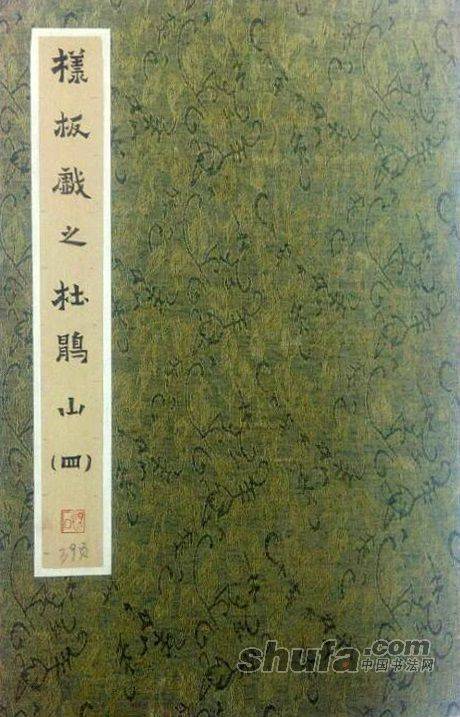 樣板戲之杜鵑山(四)
39页
shufa.com
中国书法网